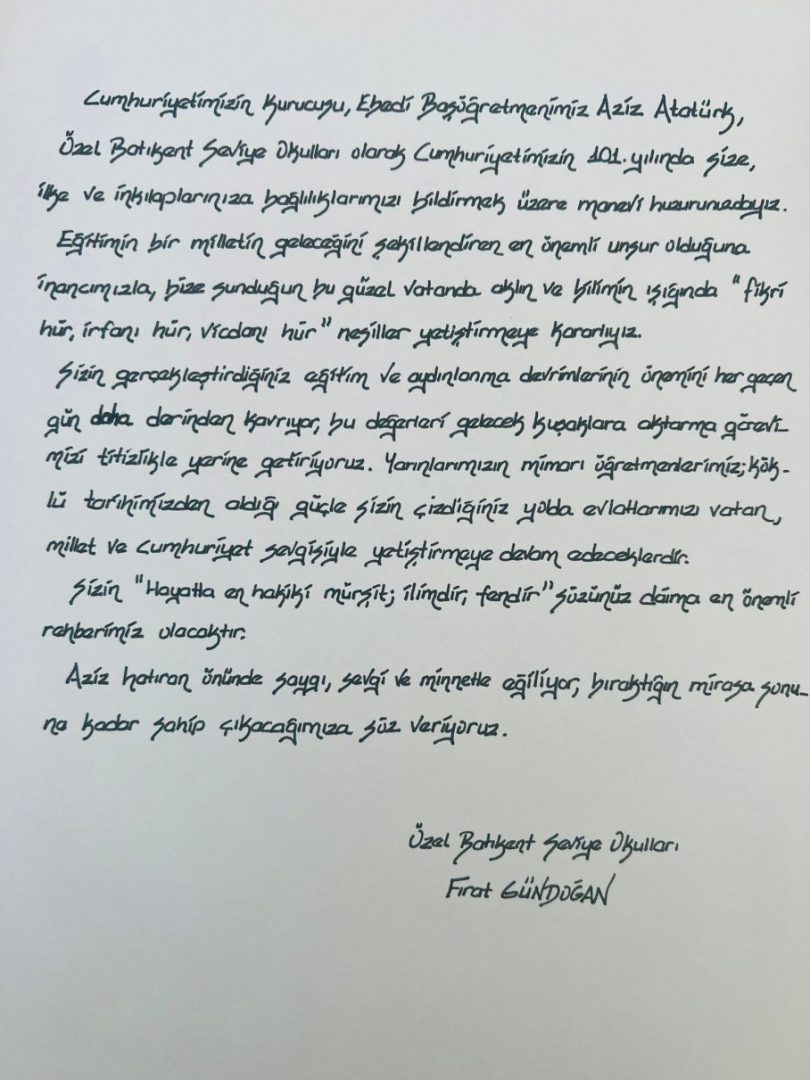 Cumhuriyetimizin Kurucusu, Ebedi Başöğretmenimiz Aziz Atatürk,
Özel Batıkent Seviye Okulları olarak Cumhuriyetimizin 101. yılında size,
ilke ve inkılaplarınıza bağlılıklarımızı bildirmek üzere manevi huzurunuzdayız.
Eğitimin bir milletin geleceğini şekillendiren en önemli unsur olduğuna
inancımızla, bize sunduğun bu güzel vatanda aklın ve bilimin ışığında "fikri
hür, irfanı hür, vicdanı hür" nesiller yetiştirmeye kararlıyız.
Sizin gerçekleştirdiğiniz eğitim ve aydınlanma devrimlerinin önemini her geçen
gün daha derinden kavrıyor, bu değerleri gelecek kuşaklara aktarma görevi-
mizi titizlikle yerine getiriyoruz. Yarınlarımızın mimarı öğretmenlerimiz; kök-
lü tarihimizden aldığı güçle sizin çizdiğiniz yolda evlatlarımızı vatan,
millet ve Cumhuriyet sevgisiyle yetiştirmeye devam edeceklerdir.
Sizin "Hayatta en hakiki mürşit; ilimdir, fendir" sözünüz daima en önemli
rehberimiz olacaktır.
Aziz hatıran önünde saygı, sevgi ve minnetle eğiliyor, bıraktığın mirasa sonu-
na kadar sahip çıkacağımıza söz veriyoruz.
Özel Batıkent Seviye Okulları
Fırat GÜNDOĞAN